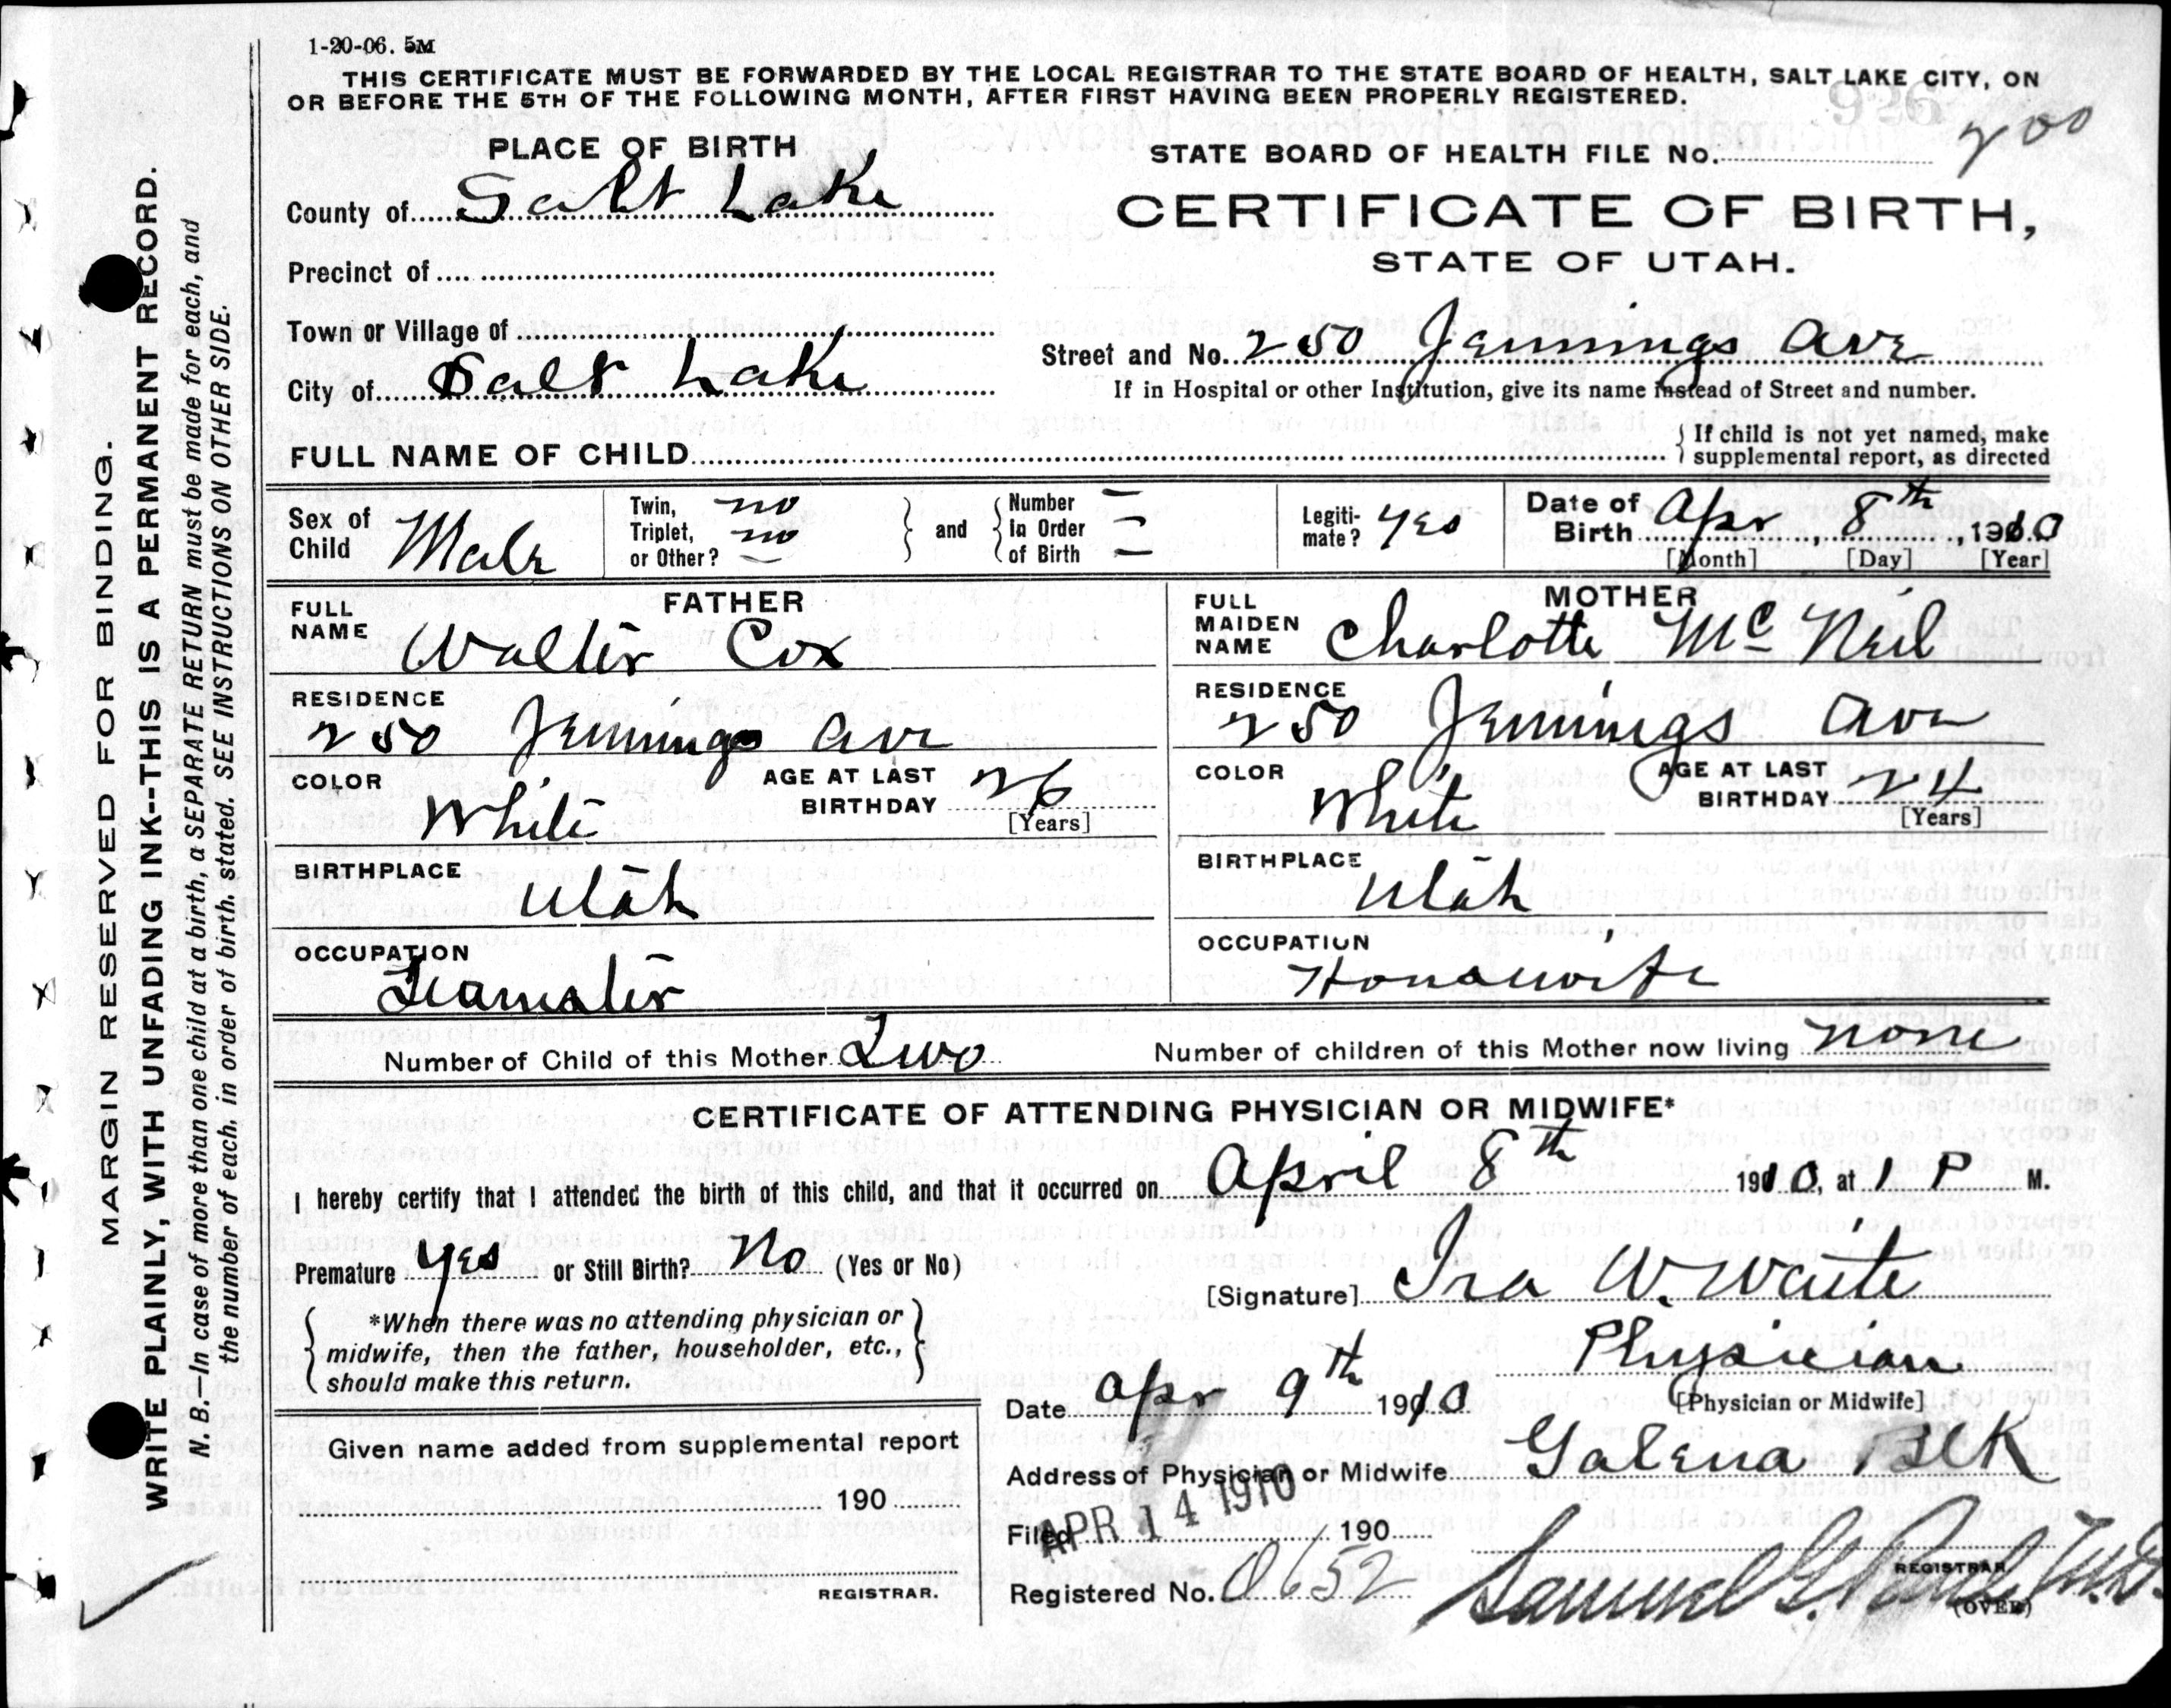 1-20-06. 5M
THIS CERTIFICATE MUST BE FORWARDED BY THE LOCAL REGISTRAR TO THE STATE BOARD OF HEALTH, SALT LAKE CITY, ON
OR BEFORE THE 5TH OF THE FOLLOWING MONTH, AFTER FIRST HAVING BEEN PROPERLY REGISTERED.
926
PLACE OF BIRTH
STATE BOARD OF HEALTH FILE No. 200
County of Salt Lake
CERTIFICATE OF BIRTH,
STATE OF UTAH.
Precinct of
Town or Village of
Street and No. 250 Jennings Ave
City of Salt Lake
If in Hospital or other Institution, give its name instead of Street and number.
FULL NAME OF CHILD
If child is not yet named, make
supplemental report, as directed
Sex of Child Male
Twin, no
Triplet, no
or Other? —
and
Number —
in Order —
of Birth —
Legiti-
mate? yes
Date of
Birth Apr 8th, 1910
[Month] [Day] [Year]
FATHER
FULL NAME Walter Cox
MOTHER
FULL MAIDEN NAME Charlotte McNeil
RESIDENCE
250 Jennings Ave
RESIDENCE
250 Jennings Ave
COLOR White
AGE AT LAST BIRTHDAY 26
[Years]
COLOR White
AGE AT LAST BIRTHDAY 24
[Years]
BIRTHPLACE Utah
BIRTHPLACE Utah
OCCUPATION
Teamster
OCCUPATION
Housewife
Number of Child of this Mother Two
Number of children of this Mother now living none
CERTIFICATE OF ATTENDING PHYSICIAN OR MIDWIFE*
I hereby certify that I attended the birth of this child, and that it occurred on April 8th 1910, at 1 P M.
Premature yes or Still Birth? No (Yes or No)
[Signature] Ira W. Waite
*When there was no attending physician or
midwife, then the father, householder, etc.,
should make this return.
Physician
[Physician or Midwife]
Date Apr 9th 1910
Given name added from supplemental report
Address of Physician or Midwife Galena Blk
190
Filed 190
APR 14 1910
REGISTRAR.
Registered No. 0652
Samuel G. Paul M.D.
REGISTRAR
(OVER)
MARGIN RESERVED FOR BINDING.
WRITE PLAINLY, WITH UNFADING INK--THIS IS A PERMANENT RECORD.
N. B.—In case of more than one child at a birth, a SEPARATE RETURN must be made for each, and
the number of each, in order of birth, stated. SEE INSTRUCTIONS ON OTHER SIDE.